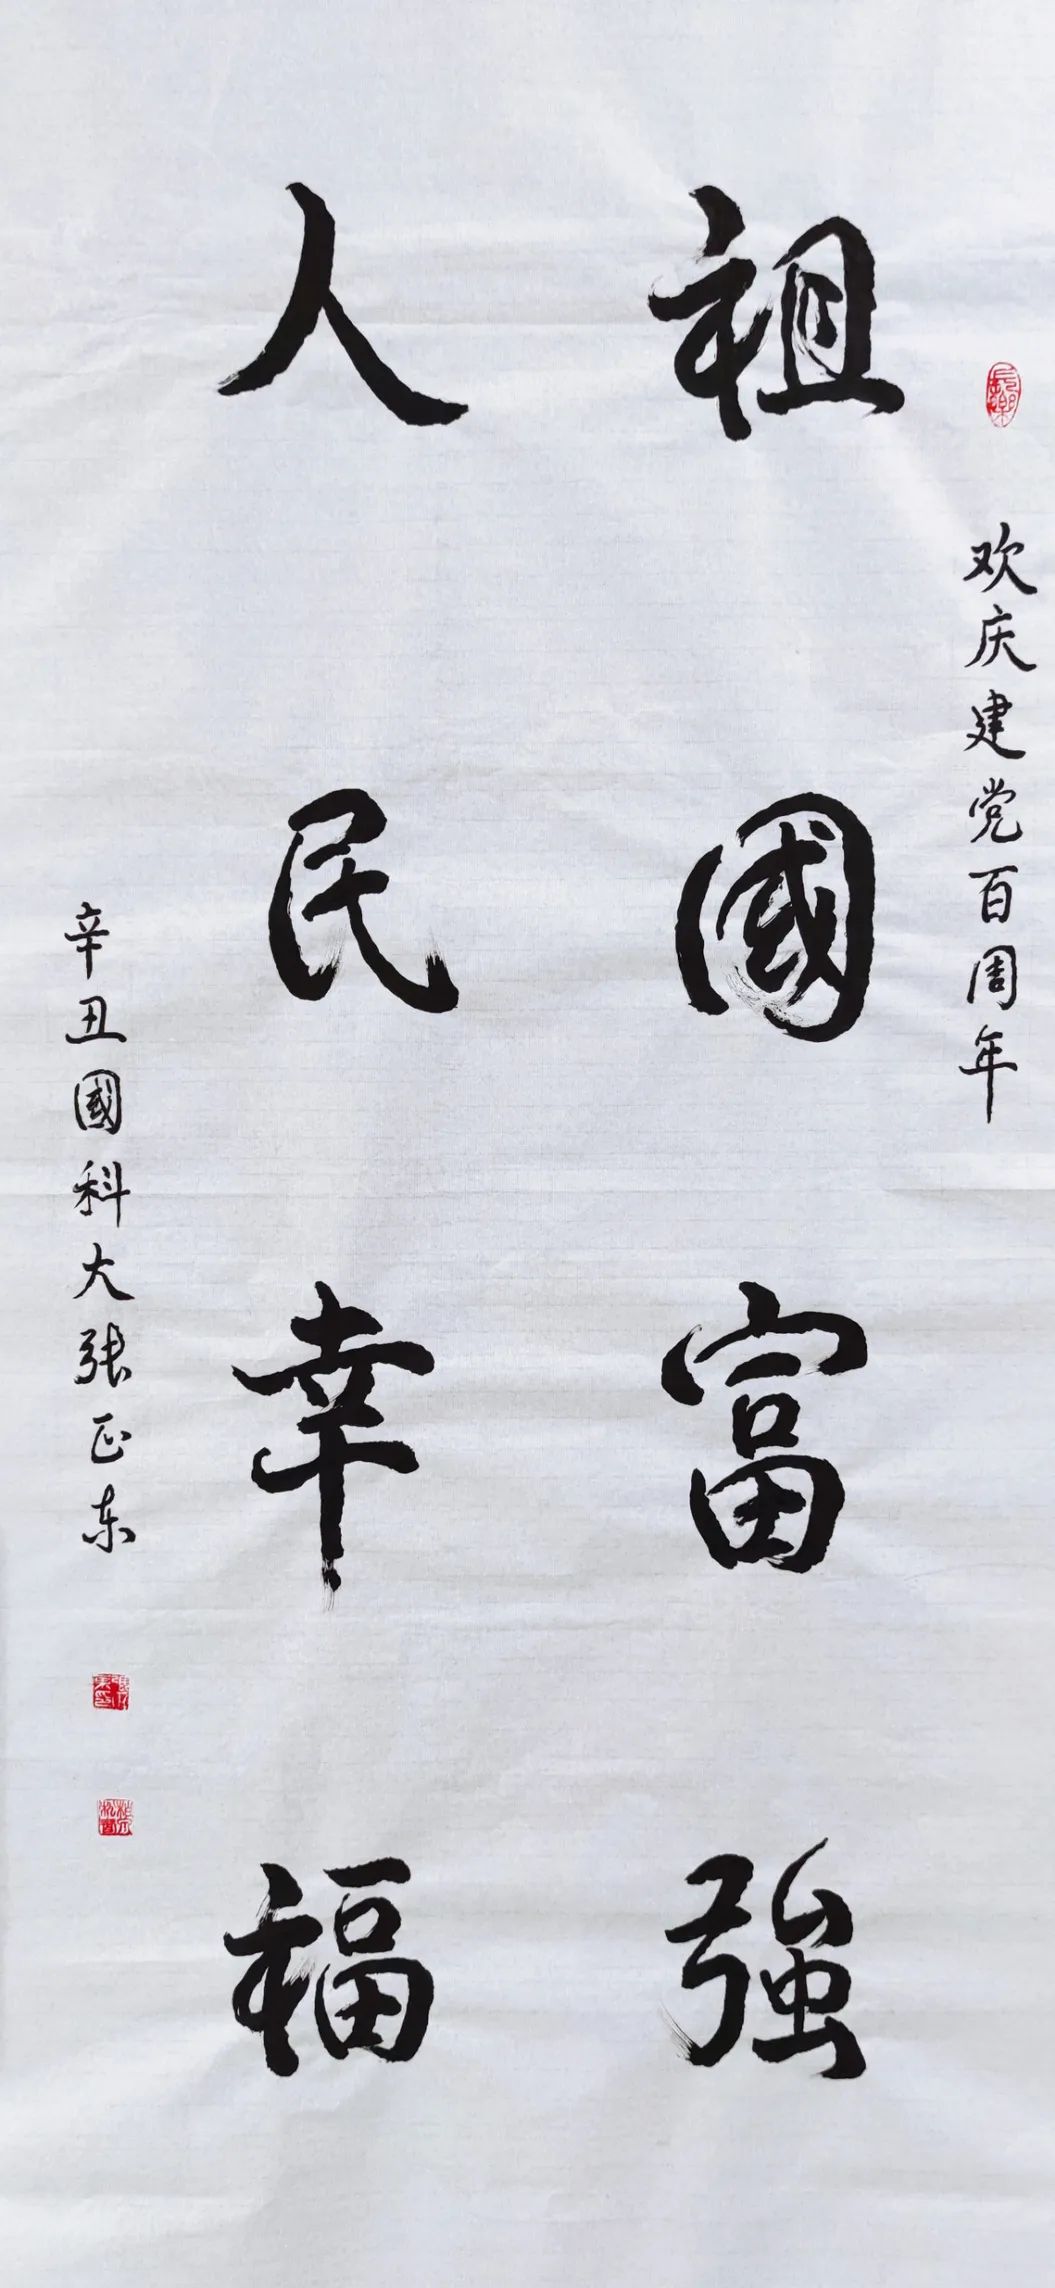 欢庆建党百周年
祖國富强
人民幸福
辛丑國科大张正东